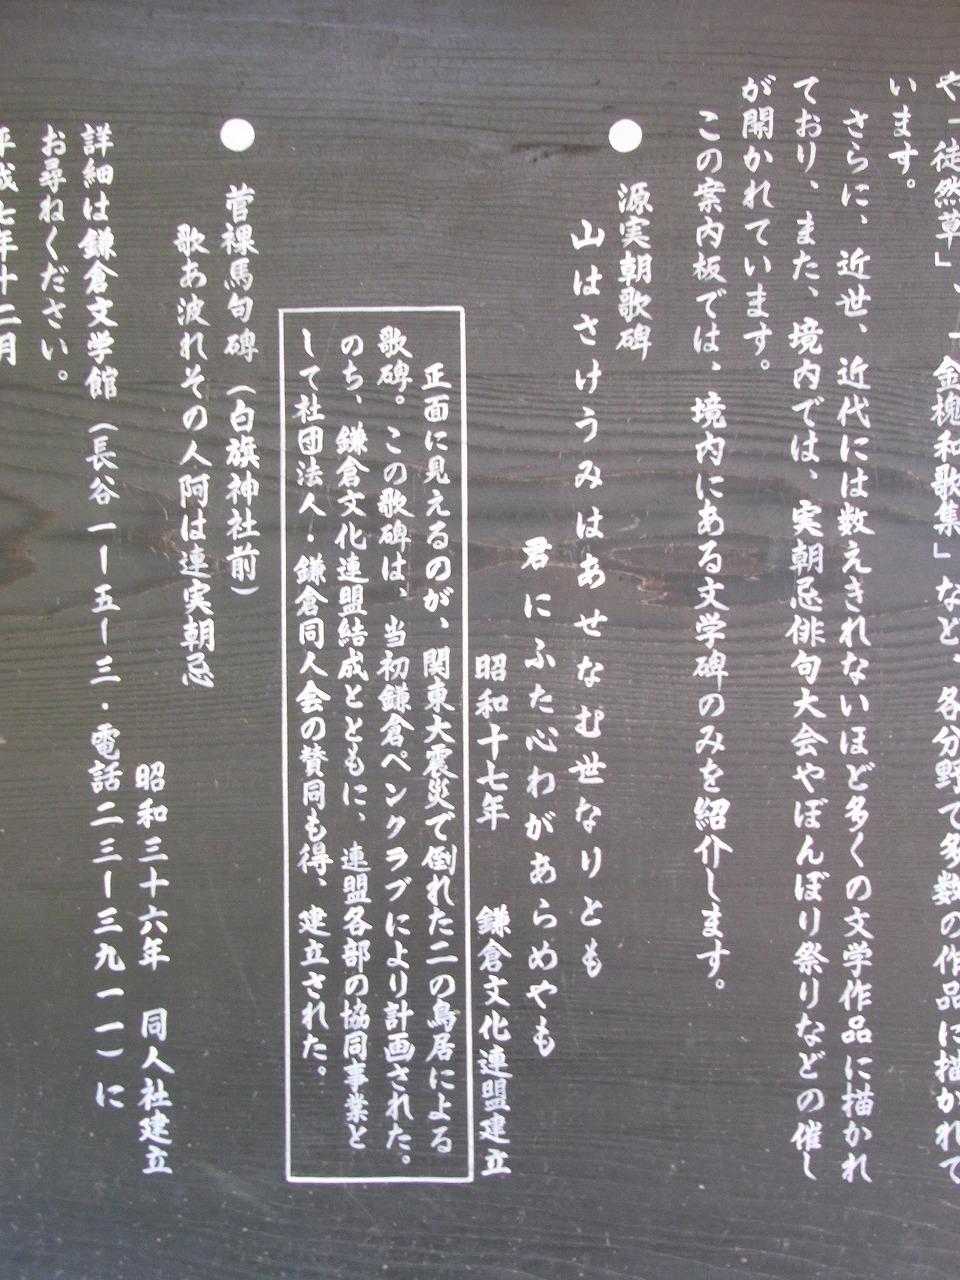 や「徒然草」、「金槐和歌集」など、各分野で多数の作品に描かれて
います。
さらに、近世、近代には数えきれないほど多くの文学作品に描かれ
ており、また、境内では、実朝忌俳句大会やぼんぼり祭りなどの催し
が開かれています。
この案内板では、境内にある文学碑のみを紹介します。
●源実朝歌碑
山はさけうみはあせなむ世なりとも
君にふた心わがあらめやも
昭和十七年 鎌倉文化連盟建立
正面に見えるのが、関東大震災で倒れた二の鳥居による
歌碑。この歌碑は、当初鎌倉ペンクラブにより計画された。
のち、鎌倉文化連盟結成とともに、連盟各部の協同事業と
して社団法人・鎌倉同人会の賛同も得、建立された。
●菅裸馬句碑(白旗神社前)
歌あ波れその人阿は連実朝忌
昭和三十六年 同人社建立
詳細は鎌倉文学館(長谷一ー五ー三・電話二三ー三九一一)に
お尋ねください。
平成七年十二月